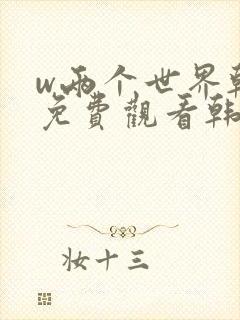 w两个世界韩
免费觀看韩
妝十三